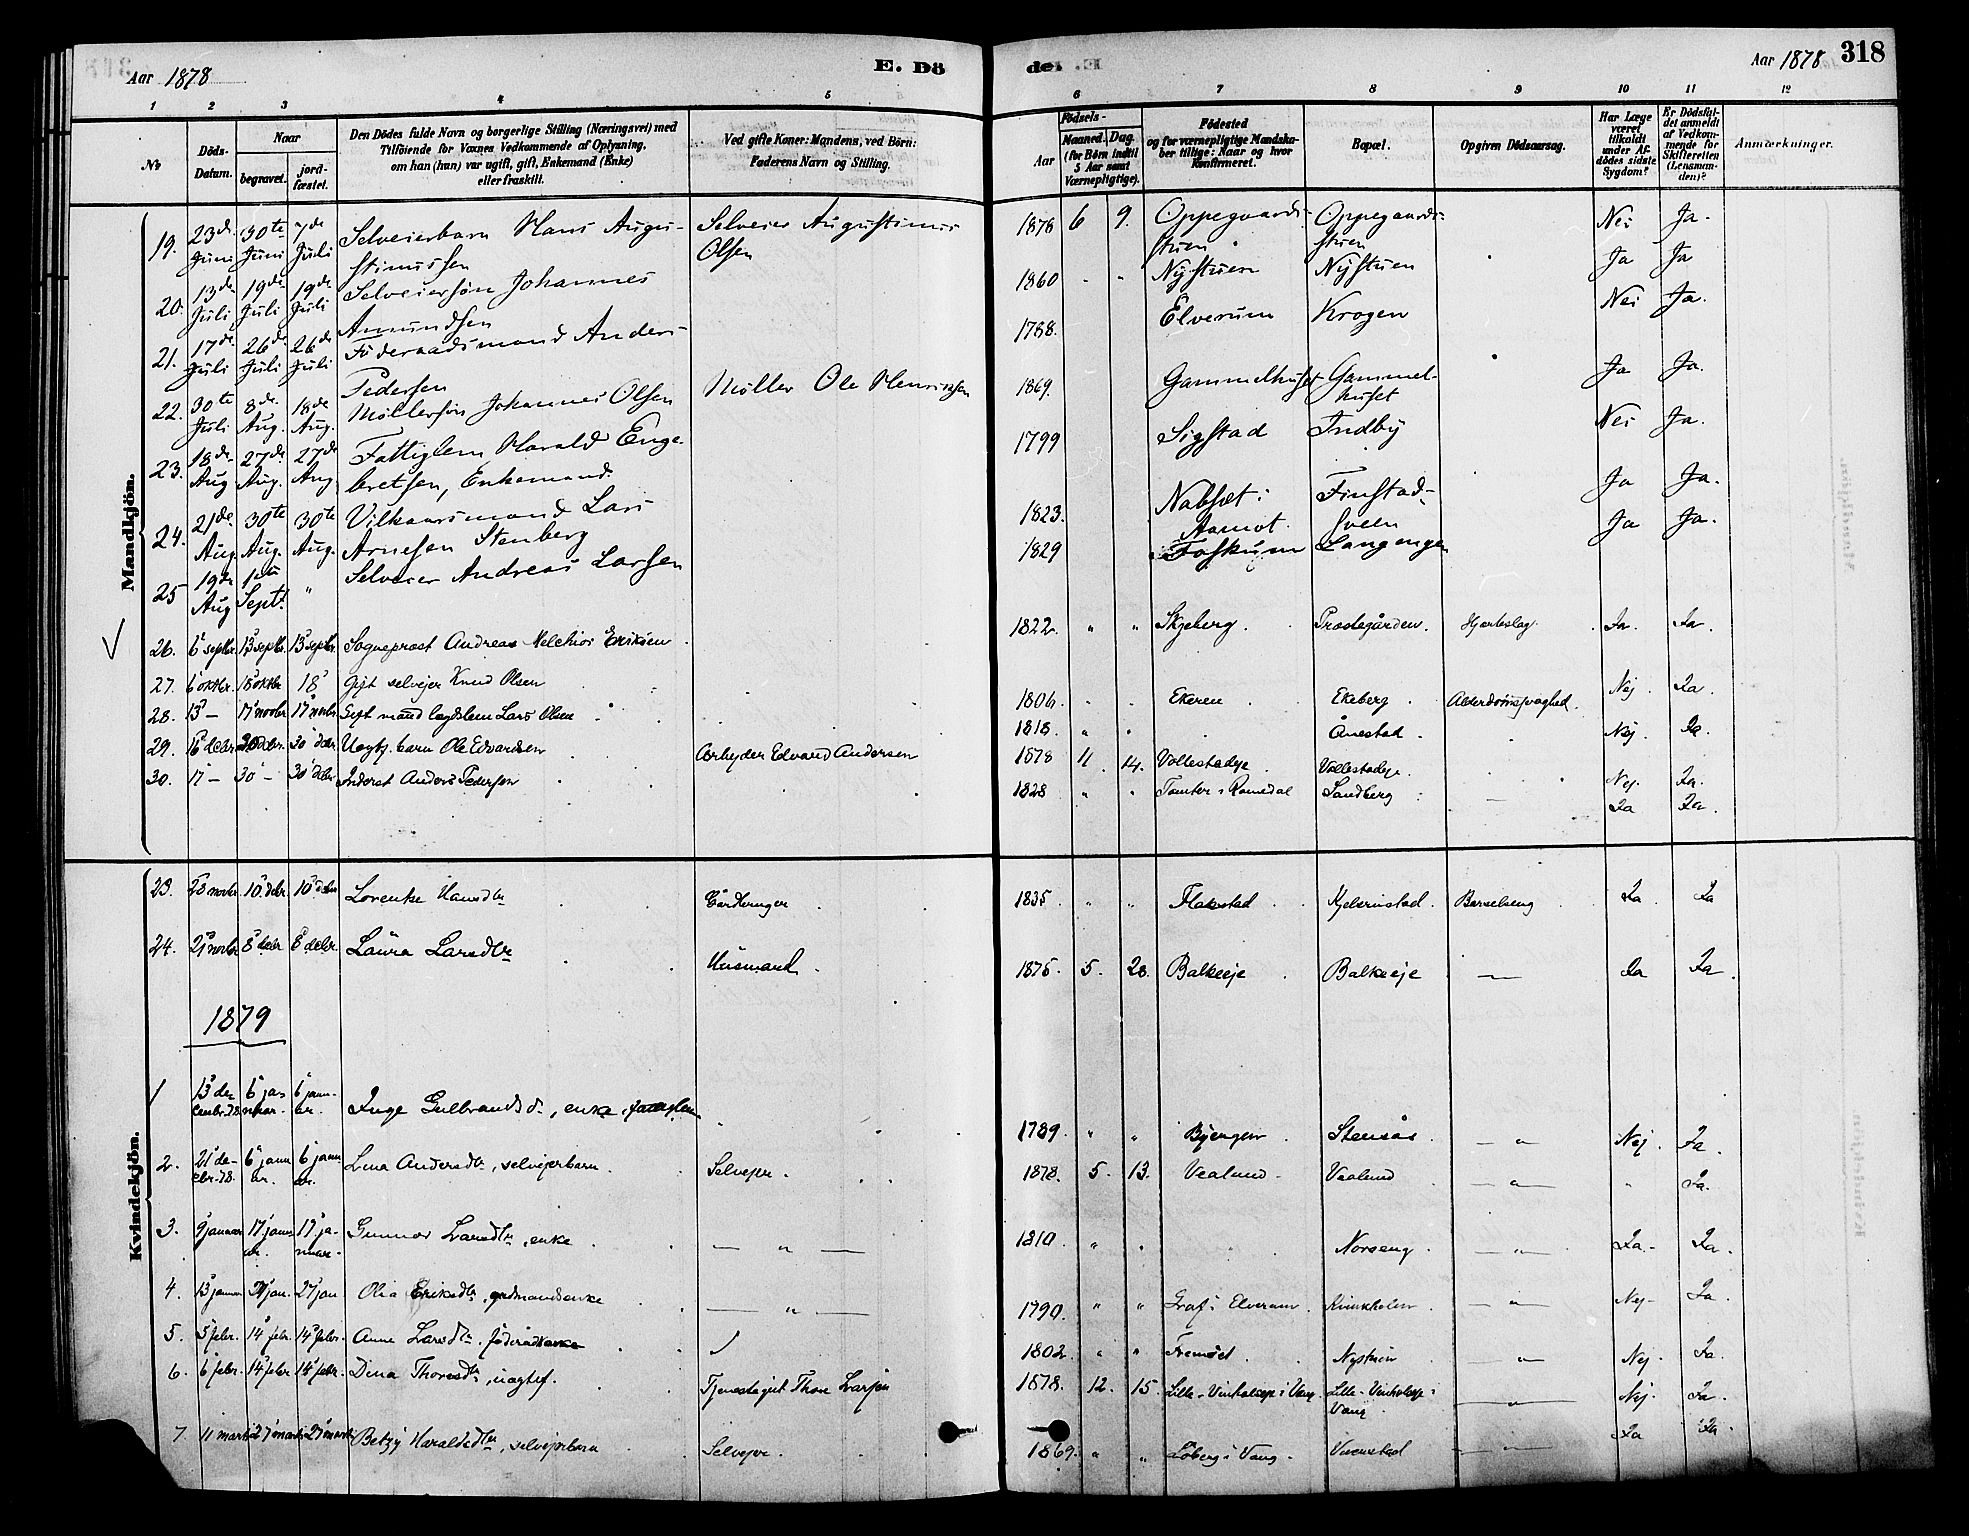 Aar 1878
E. Dö
1 2 3 4 5
No
Döds-Datum.
Naar
begravet. jordfæstet.
Den Dödes fulde Navn og borgerlige Stilling (Næringsvei) med
Tilföiende for Voxnes Vedkommende af Oplysning,
om han (hun) var ugift, gift, Enkemand (Enke)
eller fraskilt.
Ved gifte Koner: Mandens, ved Börn:
Faderens Navn og Stilling.
Mandkjön.
19. 23de Juni 30te Juni 7de Juli Selveierbarn Hans Augustinussen Selveier Augustinus Olsen
20. 13de Juli 19de Juli 19de Juli Selveiersøn Johannes Amundsen
21. 17de Juli 26de Juli 26de Juli Föderaadsmand Anders Pedersen
22. 30te Juli 8de Aug. 18de Aug. Møllersøn Johannes Olsen Møller Ole Henriksen
23. 18de Aug 27de Aug. 27de Aug Fattiglem Harald Engebretsen, Enkemand.
24. 21de Aug 30te Aug. 30te Aug. Vilkaarsmand Lars Arnesen Stenberg
25 19de Aug 1ste Sept. " Selveier Andreas Larsen
26. 6 septbr. 13 septbr. 13 septbr. Sogneprest Andreas Melchior Eriksen
27. 6 oktbr. 18 oktbr 18 Gift selvejer Knud Olsen
28. 13 — 17 novbr 17 novbr. Gift mand lægdslem Lars Olsen
29. 16 decbr 30 decbr. 30 decbr. Uægte barn Ole Edvardsen Arbeyder Edvard Andersen
30. 17 — 30 — 30 decbr Inderst Anders Pedersen
23. 28 novbr. 10 decbr. 10 decbr Lorentse Hansdtr Gårdbruger
24. 27 novbr 8 decbr 8 decbr. Laura Larsdtr Husmand
1879
Kvindekjön.
1 13 decembr. 78 6 januar 6 januar. Inge Gulbrandsd., enke,
2. 21 decbr. 78. 6 januar. 6 januar. Lina Andersdtr, selvejerbarn. Selvejer.
3. 9 januar 17 januar. 17 januar. Gunnor Larsdtr, enke — " —
4. 13 januar jan. 27 jan Olia Eriksdtr, — " —
5. 5 febr. 14 febr. 14 febr. Anne Larsdtr, föderådsenke
6. 6 febr. 14 febr 14 febr. Dina Thoresdtr, uægtef. Tjenestegut Thore Larsen
7. 11 marts 27 marts 27 marts Betzy Haraldsdtr, selvejerbarn Selvejer.
del E.
Aar 1878 318
6 7 8 9 10 11 12
Födsels-
Aar Maaned. Dag.
(for Börn indtil
5 Aar samt
Værnepligtige).
Födested
og for værnepligtige Mandskaber tillige: Naar og hvor
Konfirmeret.
Bopæl.
Opgiven Dödsaarsag.
Har Læge
været
tilkaldt
under Afdödes sidste
Sygdom?
Er Dödsfaldet anmeldt
af Vedkommende for
Skifteretten
(Lensmanden)?
Anmærkninger.
1878 6 9. Oppegaardsstuen Oppegaardsstuen Nei Ja.
1860 Nystuen Nystuen Ja Ja
1788. Elverum Krogen Nei Ja.
1869. Gammelhuset Gammelhuset Ja Ja.
1799 Sigstad Indby Nei Ja.
1823. Nabset i Aamot. Finstadsveen Ja Ja.
1829 Foskum Langenga Ja Ja.
1822. " " Skjeberg. Prestegården. Hjerteslag. Ja. Ja.
1806. Ekeren Ekeberg. Alderdomssvaghed. Nej. Ja.
1818. " Ånestad. Nej. Ja.
1878 11 14. Vollestadeje. Vollestadeje. Nej. Ja.
1828 " Tomter i Romedal Sandberg — Ja Ja.
1835. " " Flakstad. Hjelmstad. Barselseng Ja. Ja
1875. 5. 28. Balkeeje Balkeeje — Ja Ja.
1789. " " Byengen. Stensås. — " Nej. Ja.
1878. 5. 13. Vaalund. Vaalund — " — " Ja.
1810. " Norseng. — " — Ja. Ja.
1790. " " Graf i Elverum. — " — Nej. Ja.
1802. " " Nystuen — " Nej. Ja.
1878. 12. 15. Lille-Vinkeleje i Vang Lille-Vinkeleje i Vang — " — Nej. Ja.
1869. " " Löberg i Vang. — " — Ja Ja.